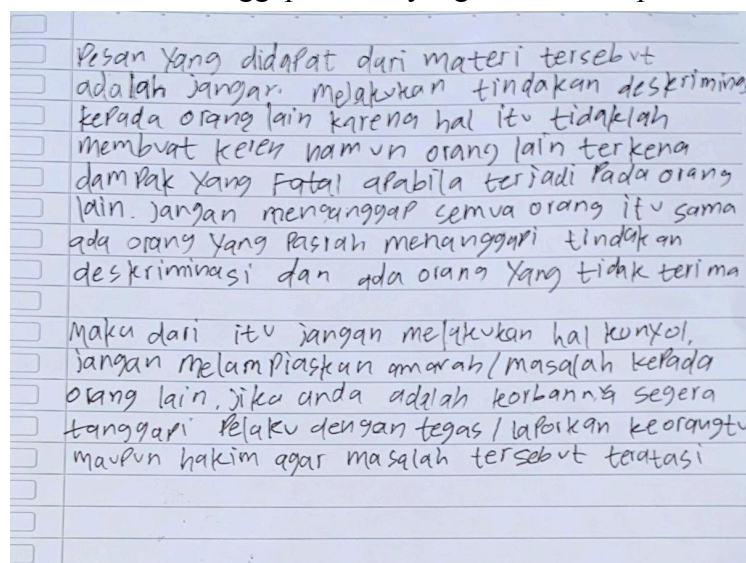 Pesan yang didapat dari materi tersebut
adalah jangan melakukan tindakan deskrimina
kepada orang lain karena hal itu tidaklah
membuat keren namun orang lain terkena
dampak yang Fatal apabila terjadi pada orang
lain. jangan mengunggap semua orang itu sama
ada orang yang pasrah menanggapi tindakan
deskriminasi dan ada orang yang tidak terima
Maka dari itu jangan melakukan hal konyol,
jangan melampiaskan amarah/masalah kepada
orang lain, jika anda adalah korbannya segera
tanggapi pelaku dengan tegas/laporkan keorangtu
maupun hakim agar masalah tersebut teratasi